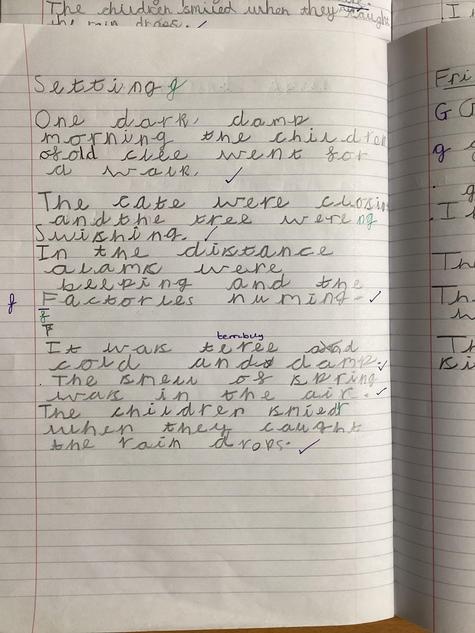 The children smiled when they caught
the rain drops.
Setting
One dark, damp
morning the children
of old clee went for
a walk.
The cats were closing
and the tree were ng
Swishing.
In the distance
alams were
beeping and the
f Factories huming.
terribuly
It was teree and
cold and damp.
The smell of spring
was in the air.
The children smied
when they caught
the rain drops.
Fri
G
g
I
Th
Th
Th
si